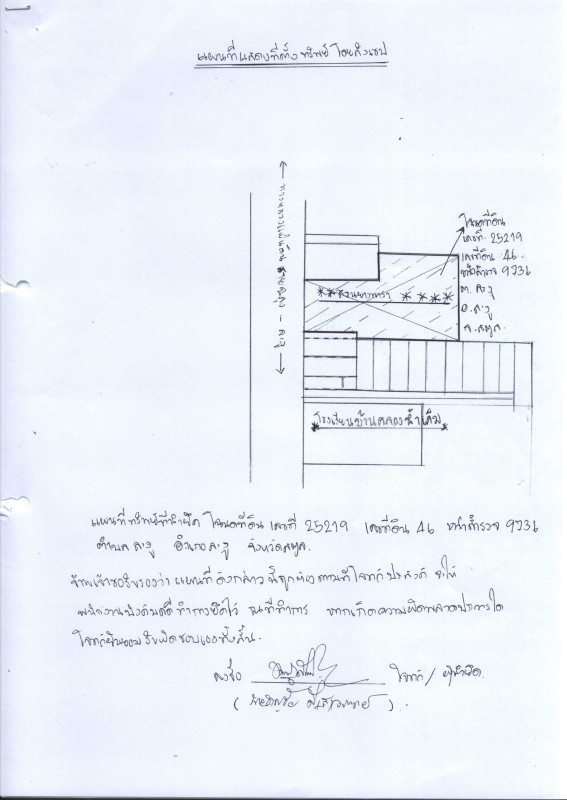 แผนที่แสดงที่ตั้งทรัพย์ โดยสังเขป
ทางหลวงแผ่นดิน - ละงู
โฉนดที่ดิน
เลขที่ 25219
เลขที่ดิน 46
หน้าสำรวจ
ต. ละงู
อ. ละงู
จ. สตูล.
สวนยางพารา
โรงเรียนบ้านคลองน้ำเค็ม
แผนที่ทรัพย์ที่นำยึด โฉนดที่ดิน เลขที่ 25219 เลขที่ดิน 46 หน้าสำรวจ
ตำบล ละงู อำเภอ ละงู จังหวัดสตูล.
ข้าพเจ้าขอรับรองว่า แผนที่ดังกล่าว นี้ถูกต้องตามที่โจทก์ ประสงค์ จะให้
พนักงานบังคับคดี ทำการยึดไว้ ณ ที่ทำการ หากเกิดความผิดพลาดประการใด
โจทก์ยินยอมรับผิดชอบเองทั้งสิ้น.
ลงชื่อ โจทก์ / ผู้นำยึด.